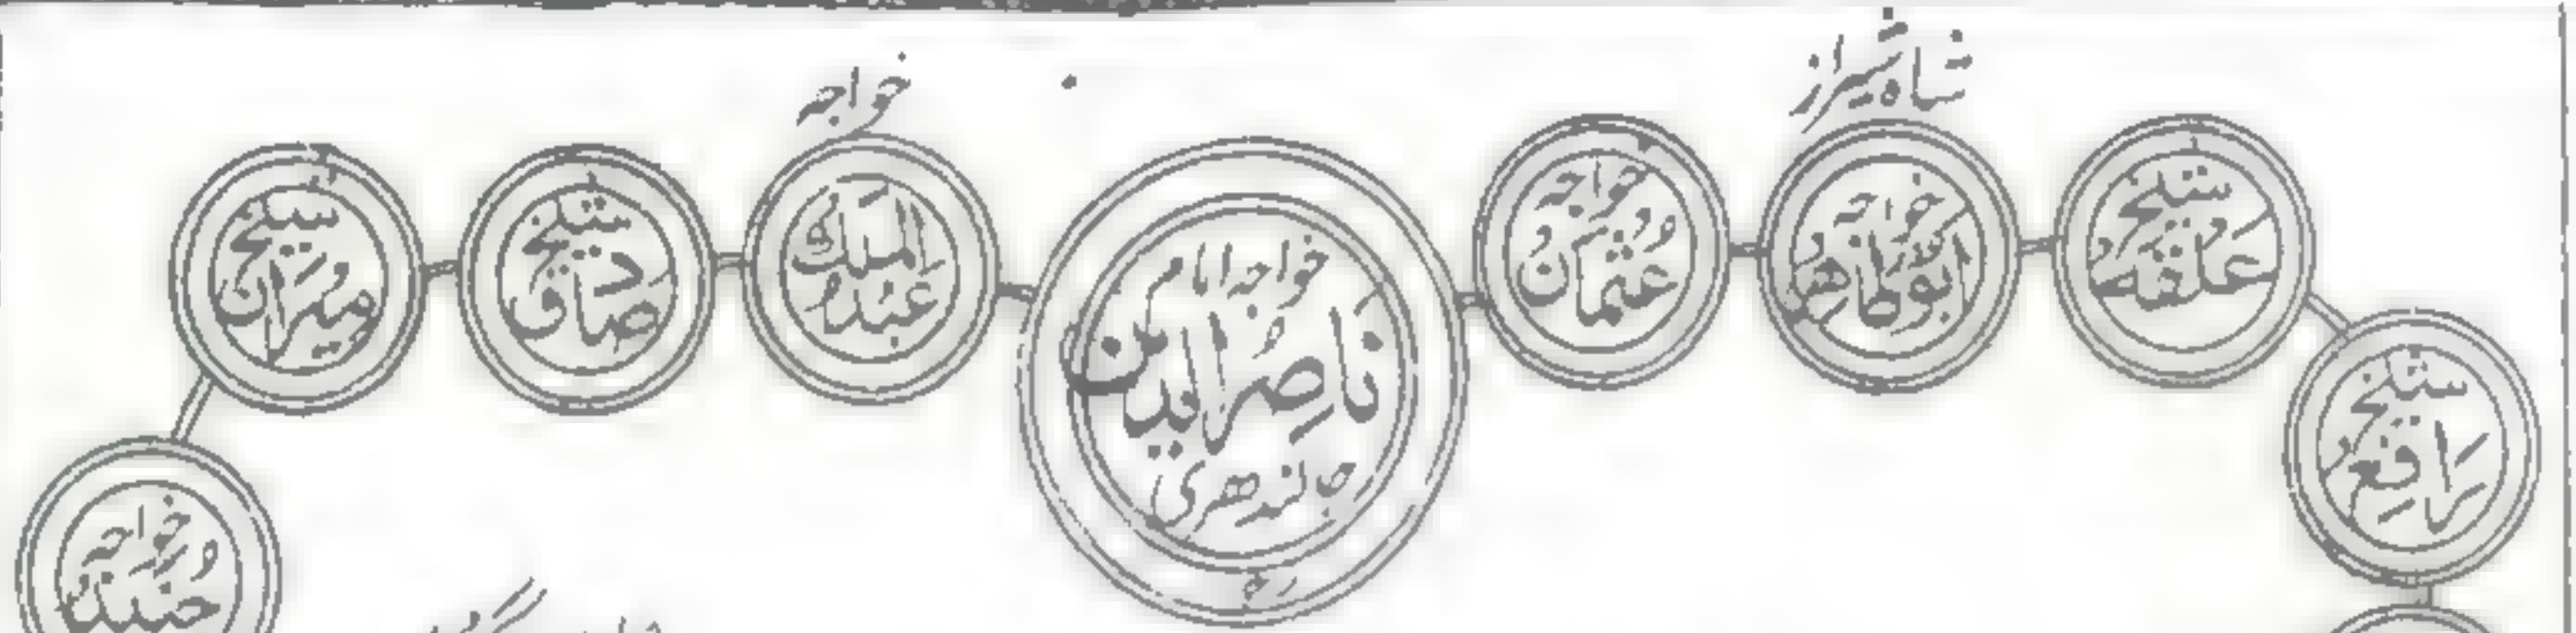 شاہ شیراز
خواجہ
شیخ
علقمہ
خواجہ
ابو طاہر
خواجہ
عثمان
خواجہ امام
ناصر الدین
جالندھری
رح
عبد الملک
شیخ
صادق
شیخ
میران
شیخ
رافع
خواجہ
جنید